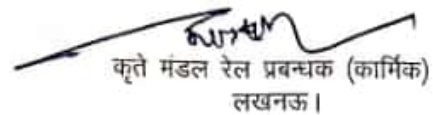 कृते मंडल रेल प्रबन्धक (कार्मिक)
लखनऊ।